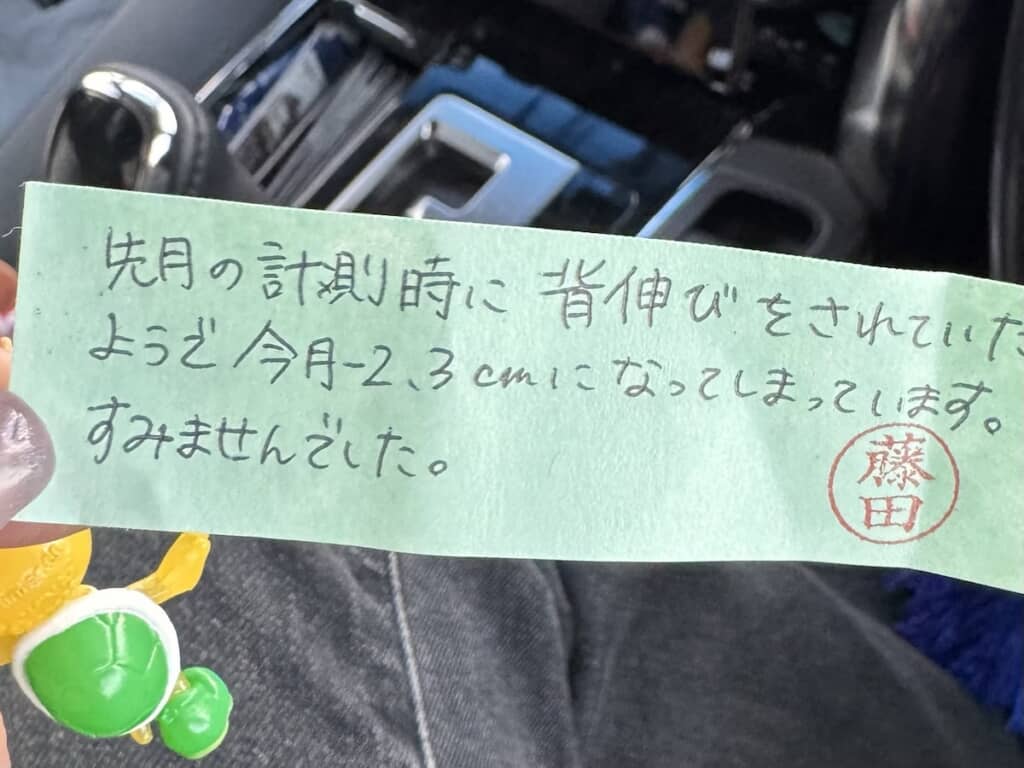 先月の計測時に背伸びをされていた
ようで今月-2、3cmになってしまっています。
すみませんでした。
藤田